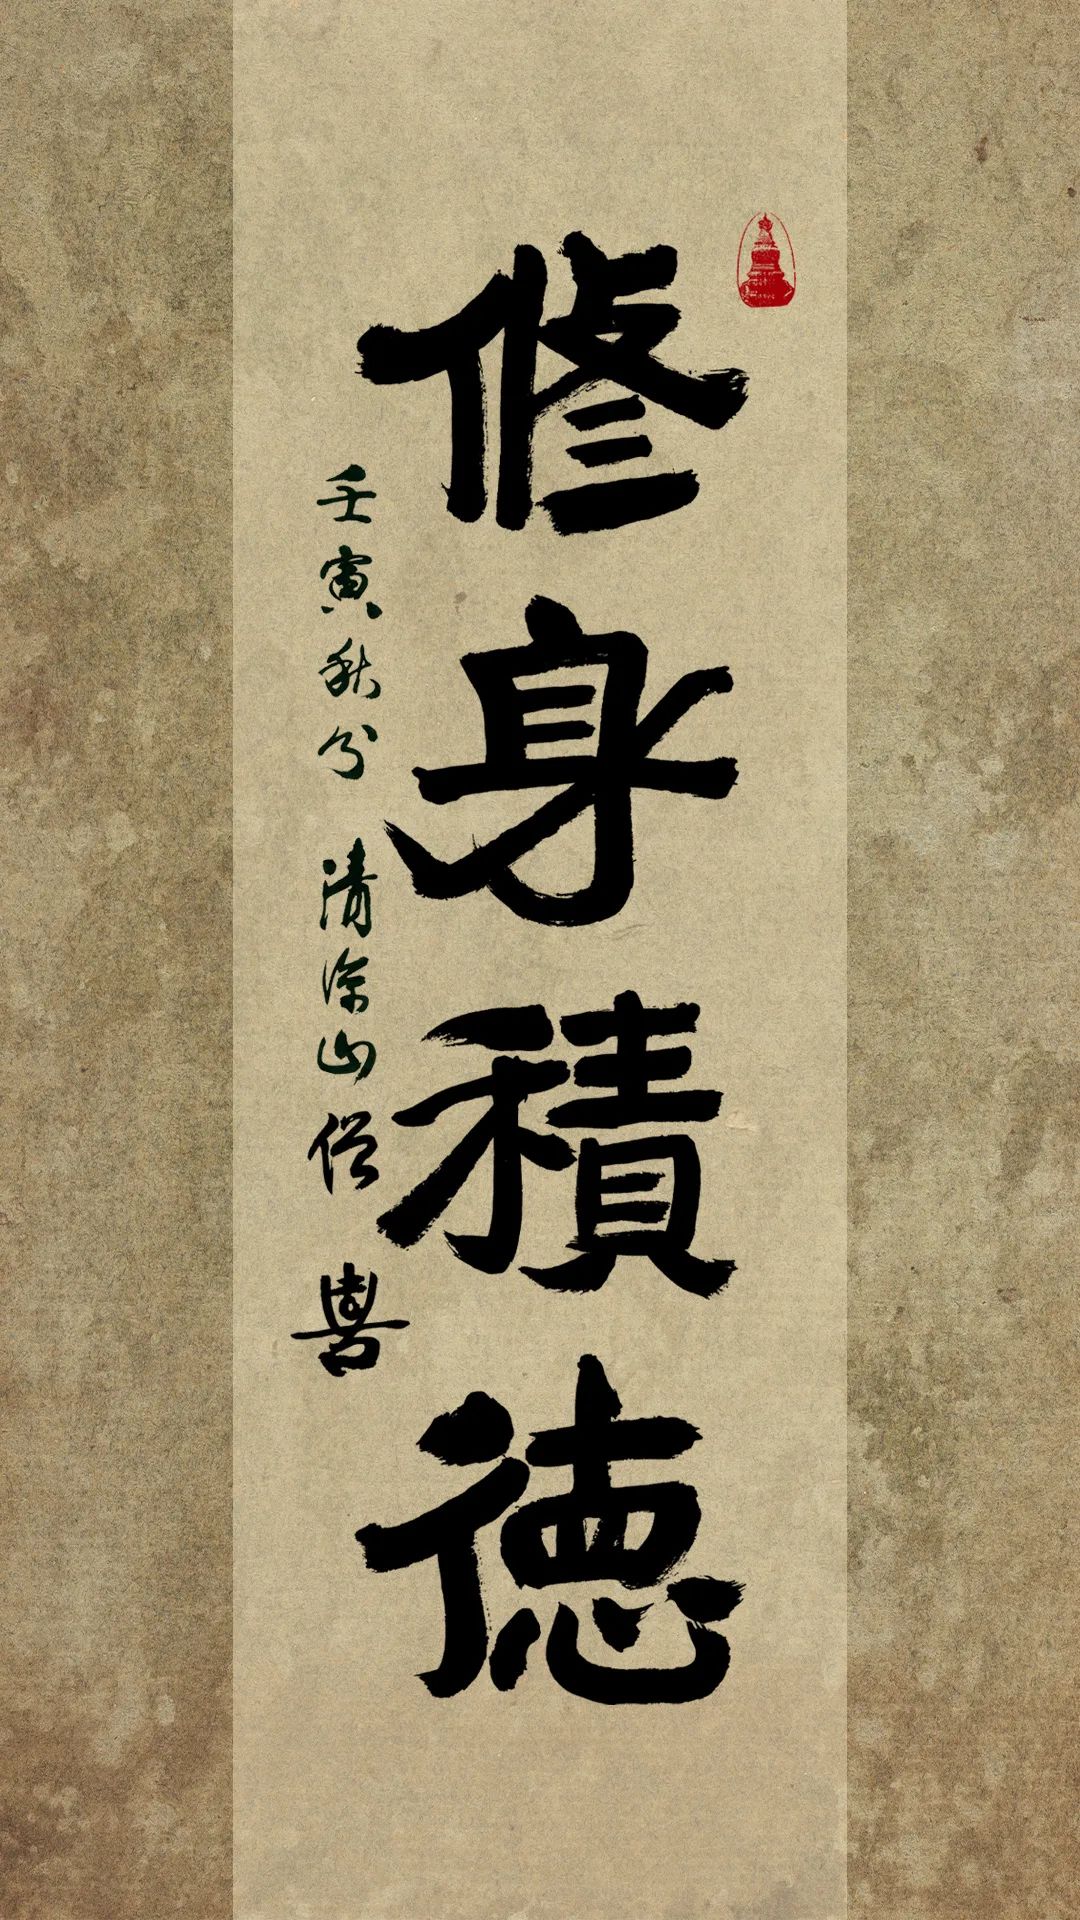 修身積德
壬寅秋分 清涼山僧 書